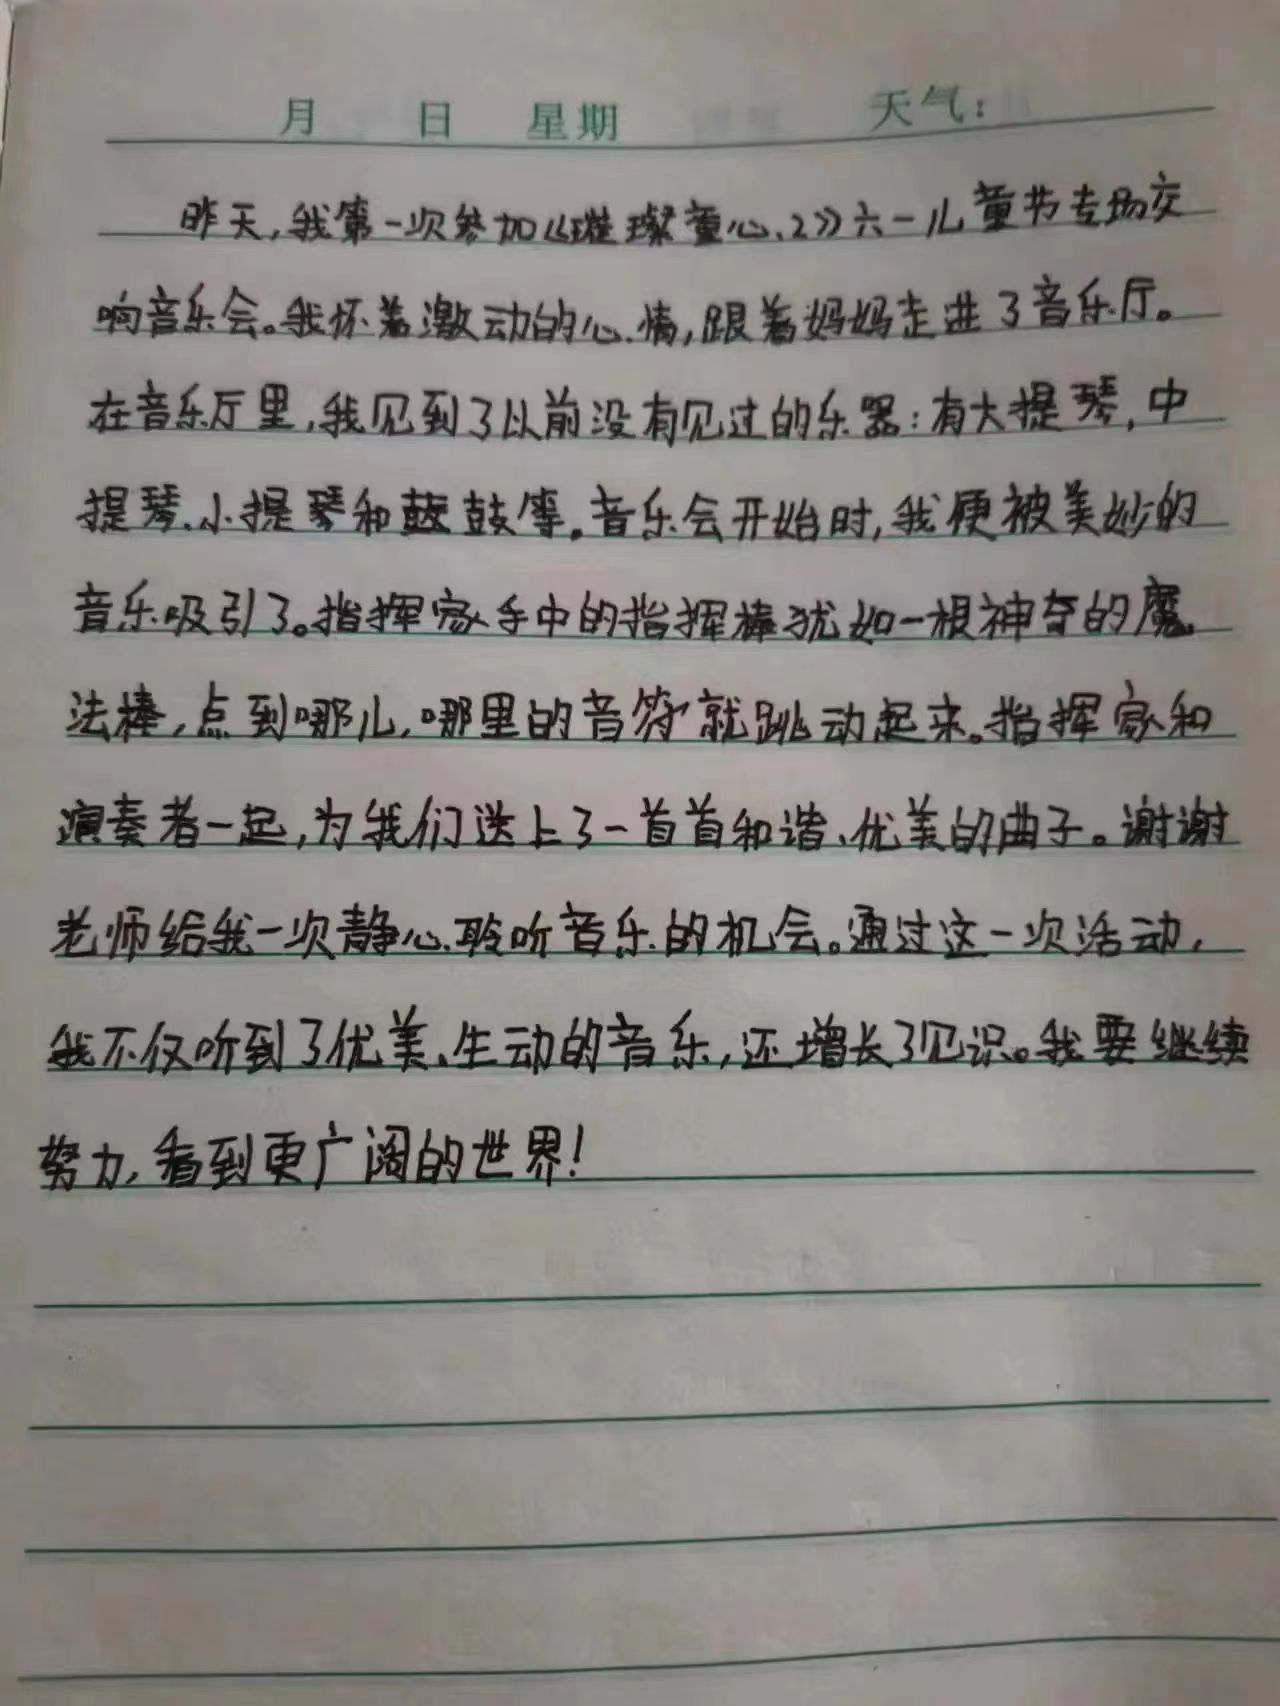 月 日 星期 天气：
昨天，我第一次参加《璀璨童心2》六一儿童节专场交
响音乐会。我怀着激动的心情，跟着妈妈走进了音乐厅。
在音乐厅里，我见到了以前没有见过的乐器：有大提琴，中
提琴、小提琴和鼓等。音乐会开始时，我便被美妙的
音乐吸引了。指挥家手中的指挥棒犹如一根神奇的魔
法棒，点到哪儿，哪里的音符就跳动起来。指挥家和
演奏者一起，为我们送上了一首首和谐、优美的曲子。谢谢
老师给我一次静心聆听音乐的机会。通过这一次活动，
我不仅听到了优美、生动的音乐，还增长了见识。我要继续
努力，看到更广阔的世界！